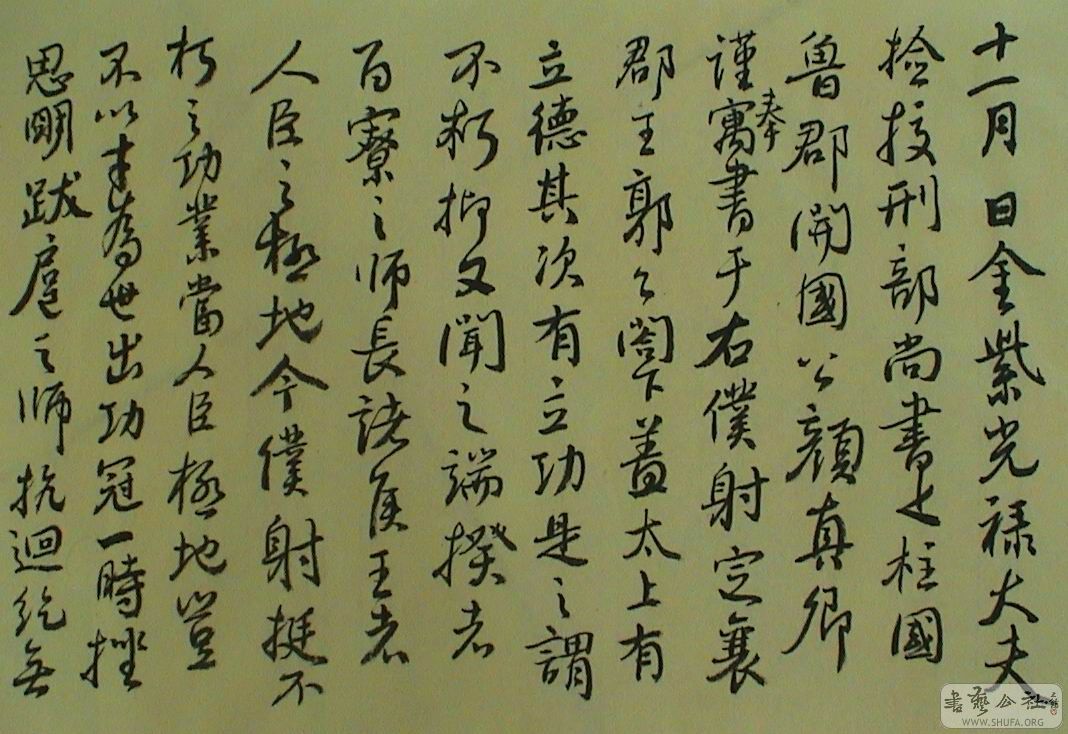 十一月 日金紫光禄大夫
捡挍刑部尚書上柱國
魯郡開國公顏真卿
謹奉寓書于右僕射定襄
郡王郭公閤下蓋太上有
立德其次有立功是之謂
不朽抑又聞之端揆者
百寮之師長諸侯王者
人臣之極地今僕射挺不
朽之功業當人臣極地豈
不以才為世出功冠一時挫
思明跋扈之師抗迴紇無
書藝公社
WWW.SHUFA.ORG